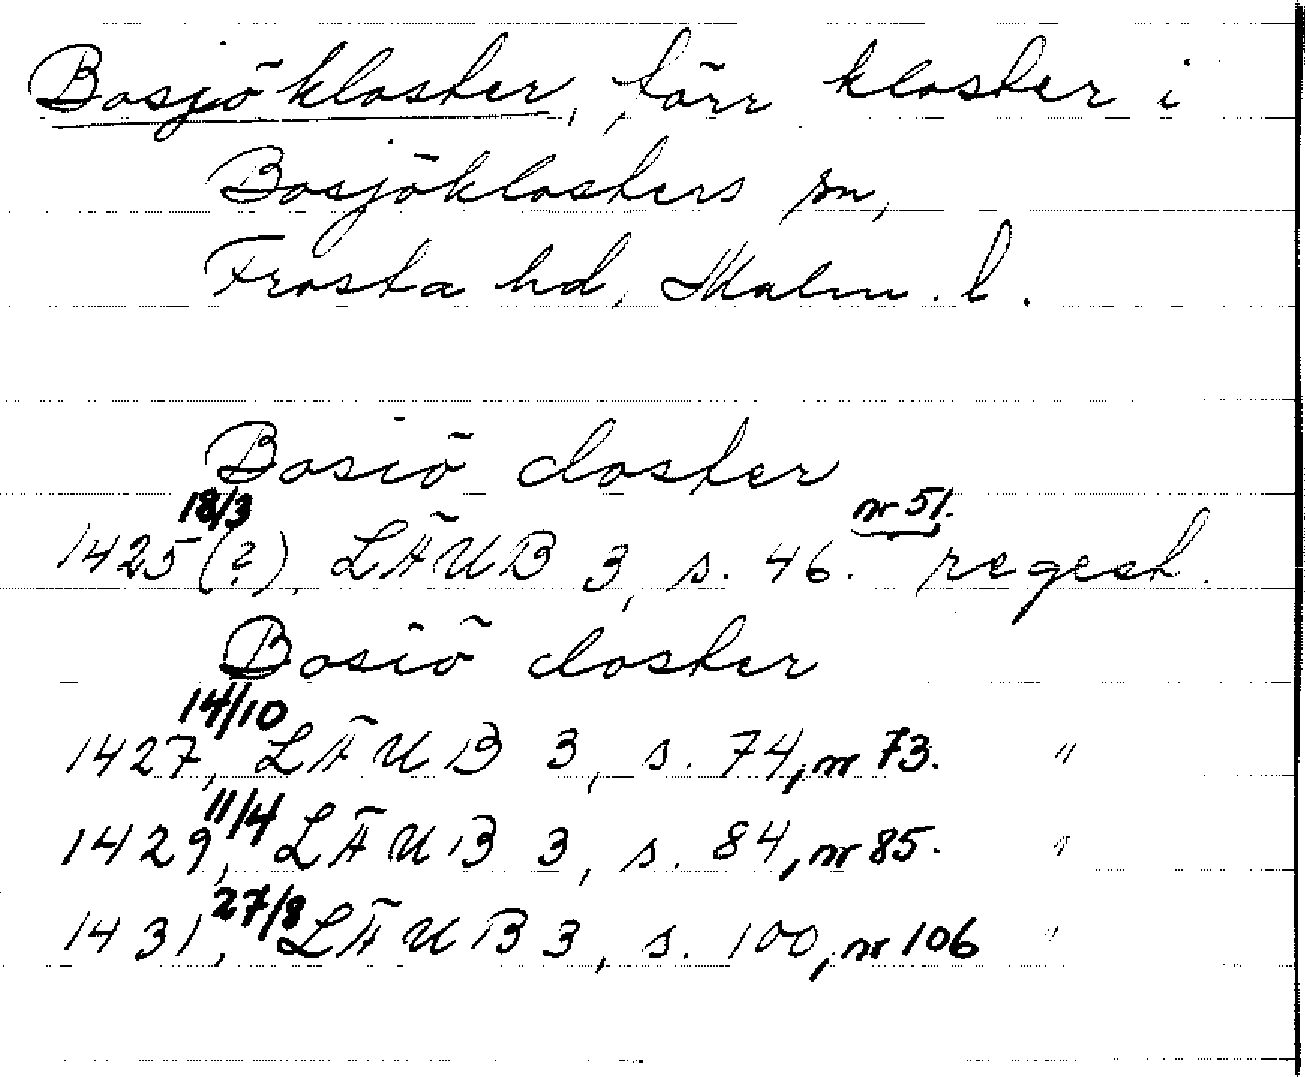 Bosjökloster, förr kloster i
Bosjöklosters sn,
Frosta hd, Malm. l.
Bosiö closter
18/3 nr 51.
1425(?), LÄUB 3, s. 46. regest.
Bosiö closter
14/10
1427, LÄUB 3, s. 74, nr 73. "
11/4
1429, LÄUB 3, s. 84, nr 85. "
27/8
1431, LÄUB 3, s. 100, nr 106 "